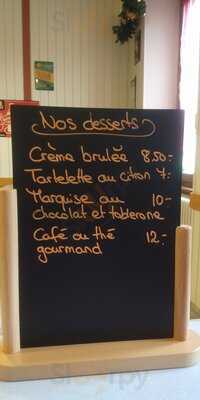 Nos desserts
Crème brulée 8.50.-
Tartelette au citron 7.-
Marquise au 10.-
chocolat et toblerone
Café ou thé 12.-
gourmand